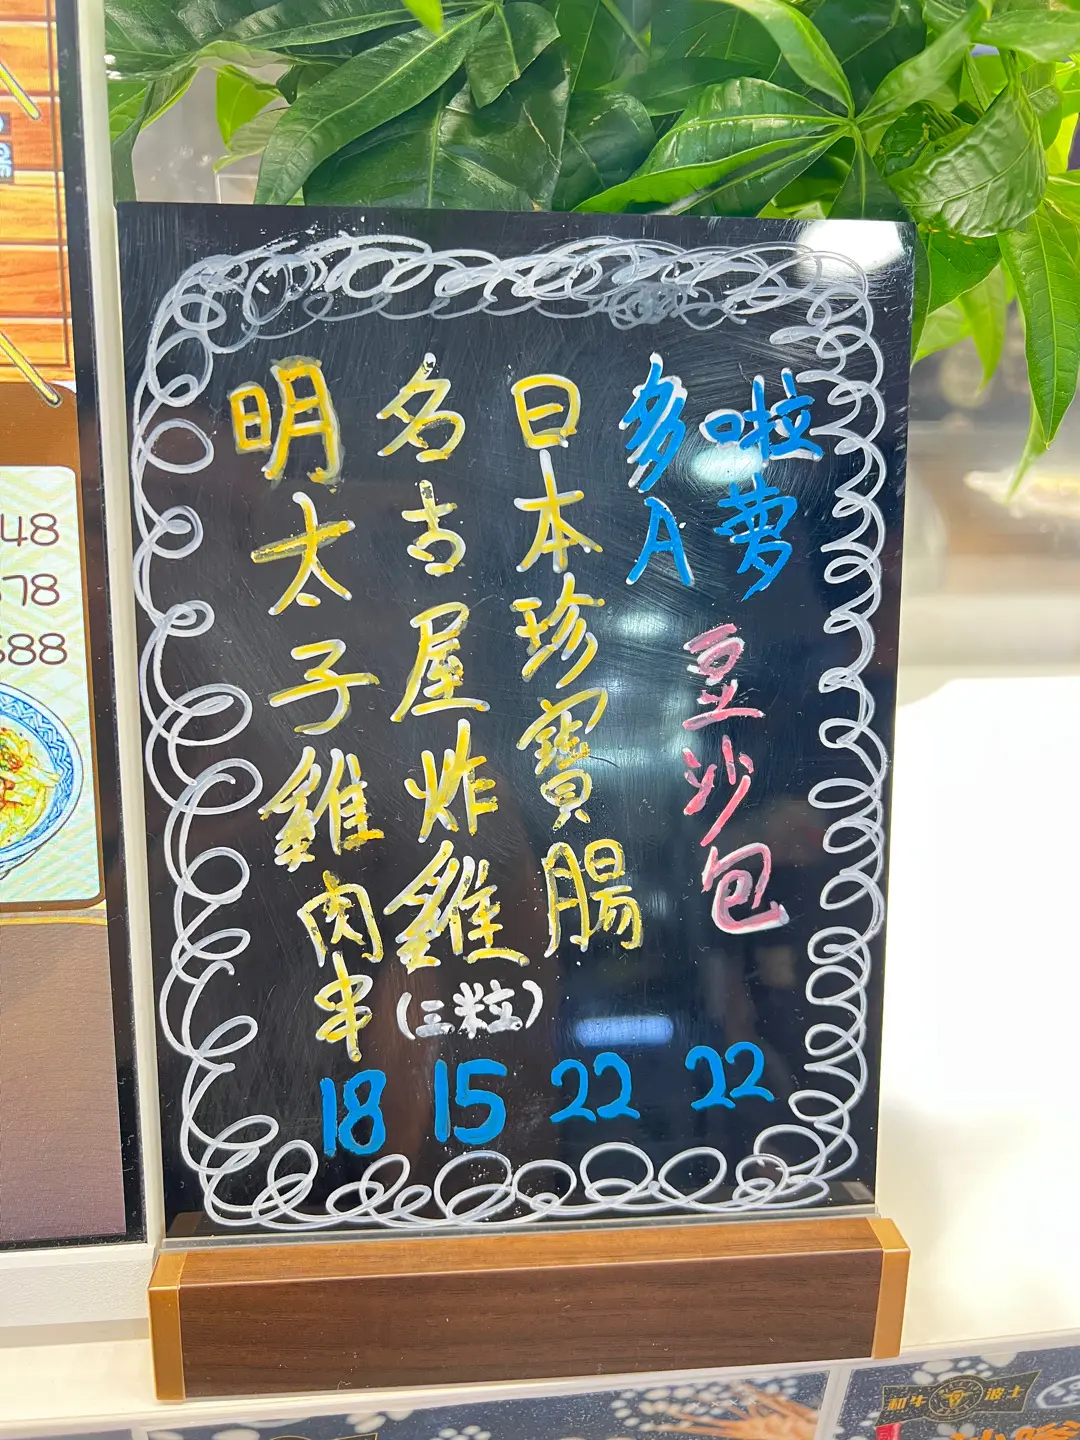 多啦
A夢
豆沙包
22
日本珍寶腸
22
名古屋炸雞
(三粒)
15
明太子雞肉串
18
48
78
88
和牛 波士